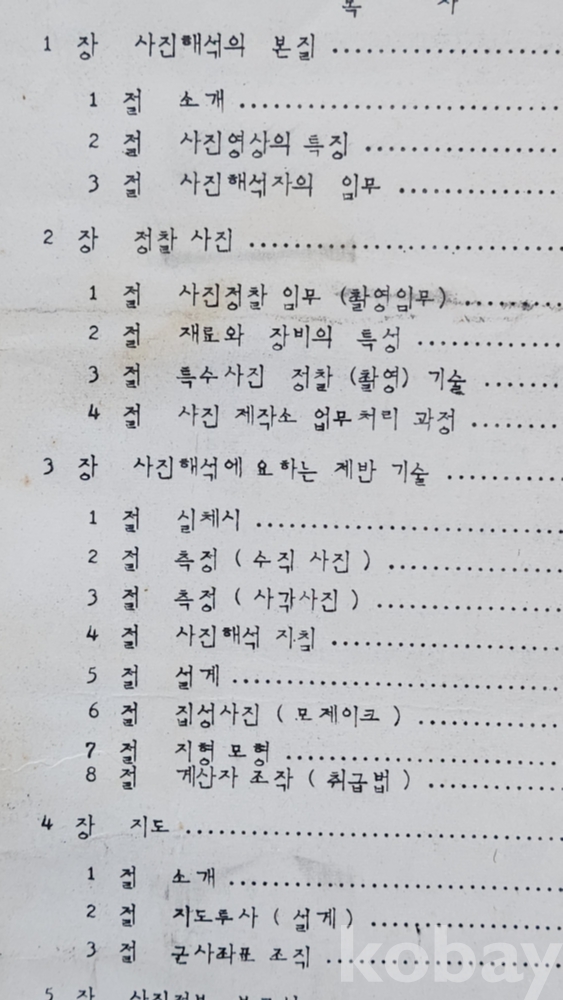 목 차
1 장 사진해석의 본질 ....................
1 절 소개 ..............................
2 절 사진영상의 특징 ..................
3 절 사진해석자의 임무 ................
2 장 정찰 사진 ..........................
1 절 사진정찰 임무 (촬영임무) ..........
2 절 재료와 장비의 특성 ...............
3 절 특수사진 정찰 (촬영) 기술 ........
4 절 사진 제작소 업무처리 과정 .........
3 장 사진해석에 요하는 제반 기술 .........
1 절 실체시 ............................
2 절 측정 ( 수직 사진 ) ...............
3 절 측정 ( 사각사진 ) ................
4 절 사진해석 지침 ....................
5 절 설계 ..............................
6 절 집성사진 ( 모제이크 ) ............
7 절 지형 모형 ........................
8 절 계산자 조작 ( 취급법 ) ...........
4 장 지도 ..............................
1 절 소개 ..............................
2 절 지도투사 ( 설계 ) ................
3 절 군사좌표 조직 ....................
5 장
kobay